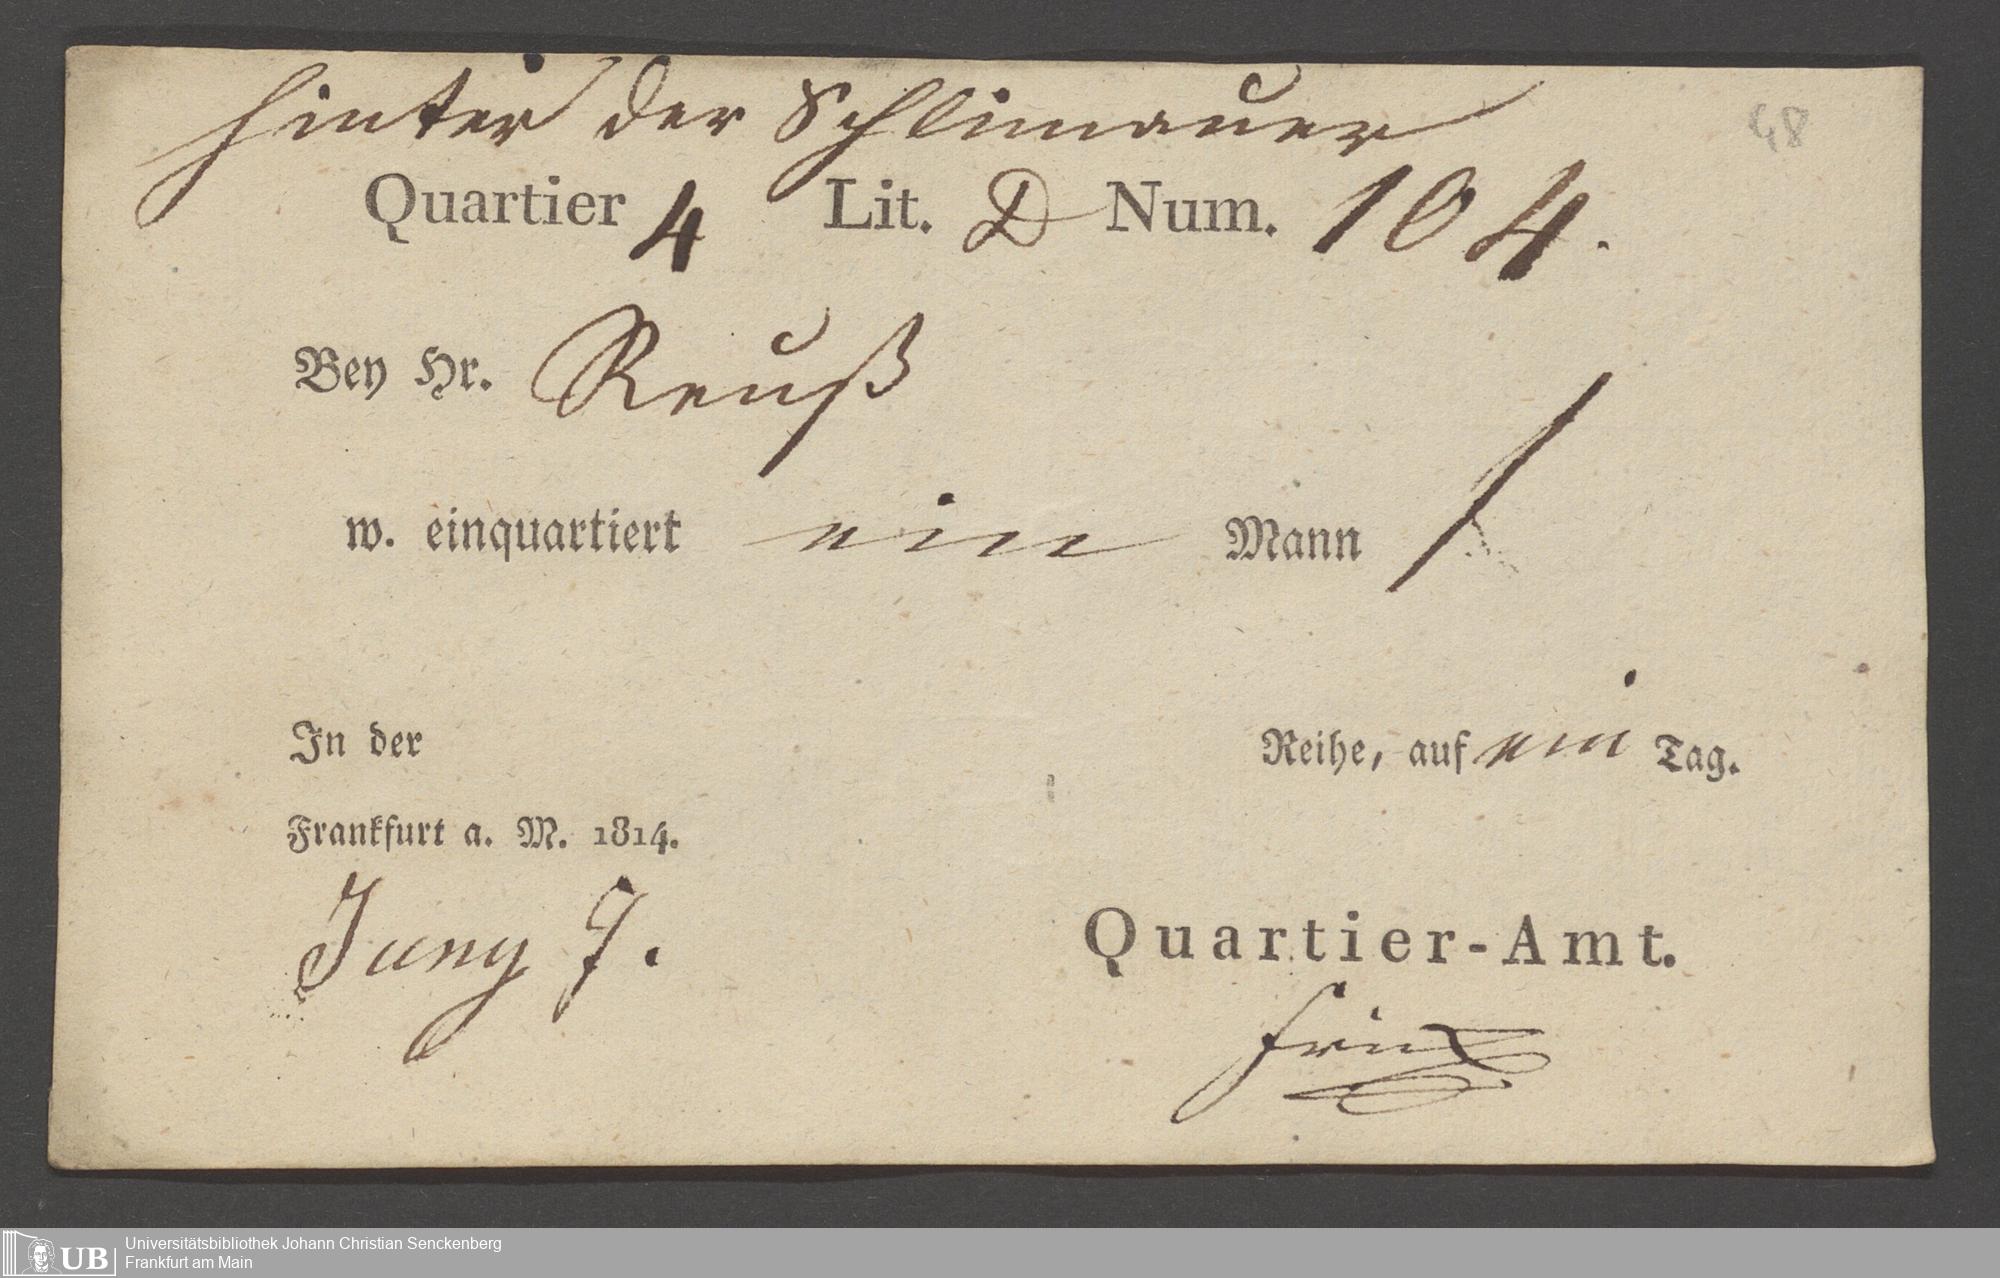 hinter der Schlimauer
48
Quartier 4 Lit. D Num. 104.
Bey Hr. Reuß
w. einquartiert ein Mann 1
In der Reihe, auf ein Tag.
Frankfurt a. M. 1814.
Juny 9.
Quartier-Amt.
UB Universitätsbibliothek Johann Christian Senckenberg
Frankfurt am Main